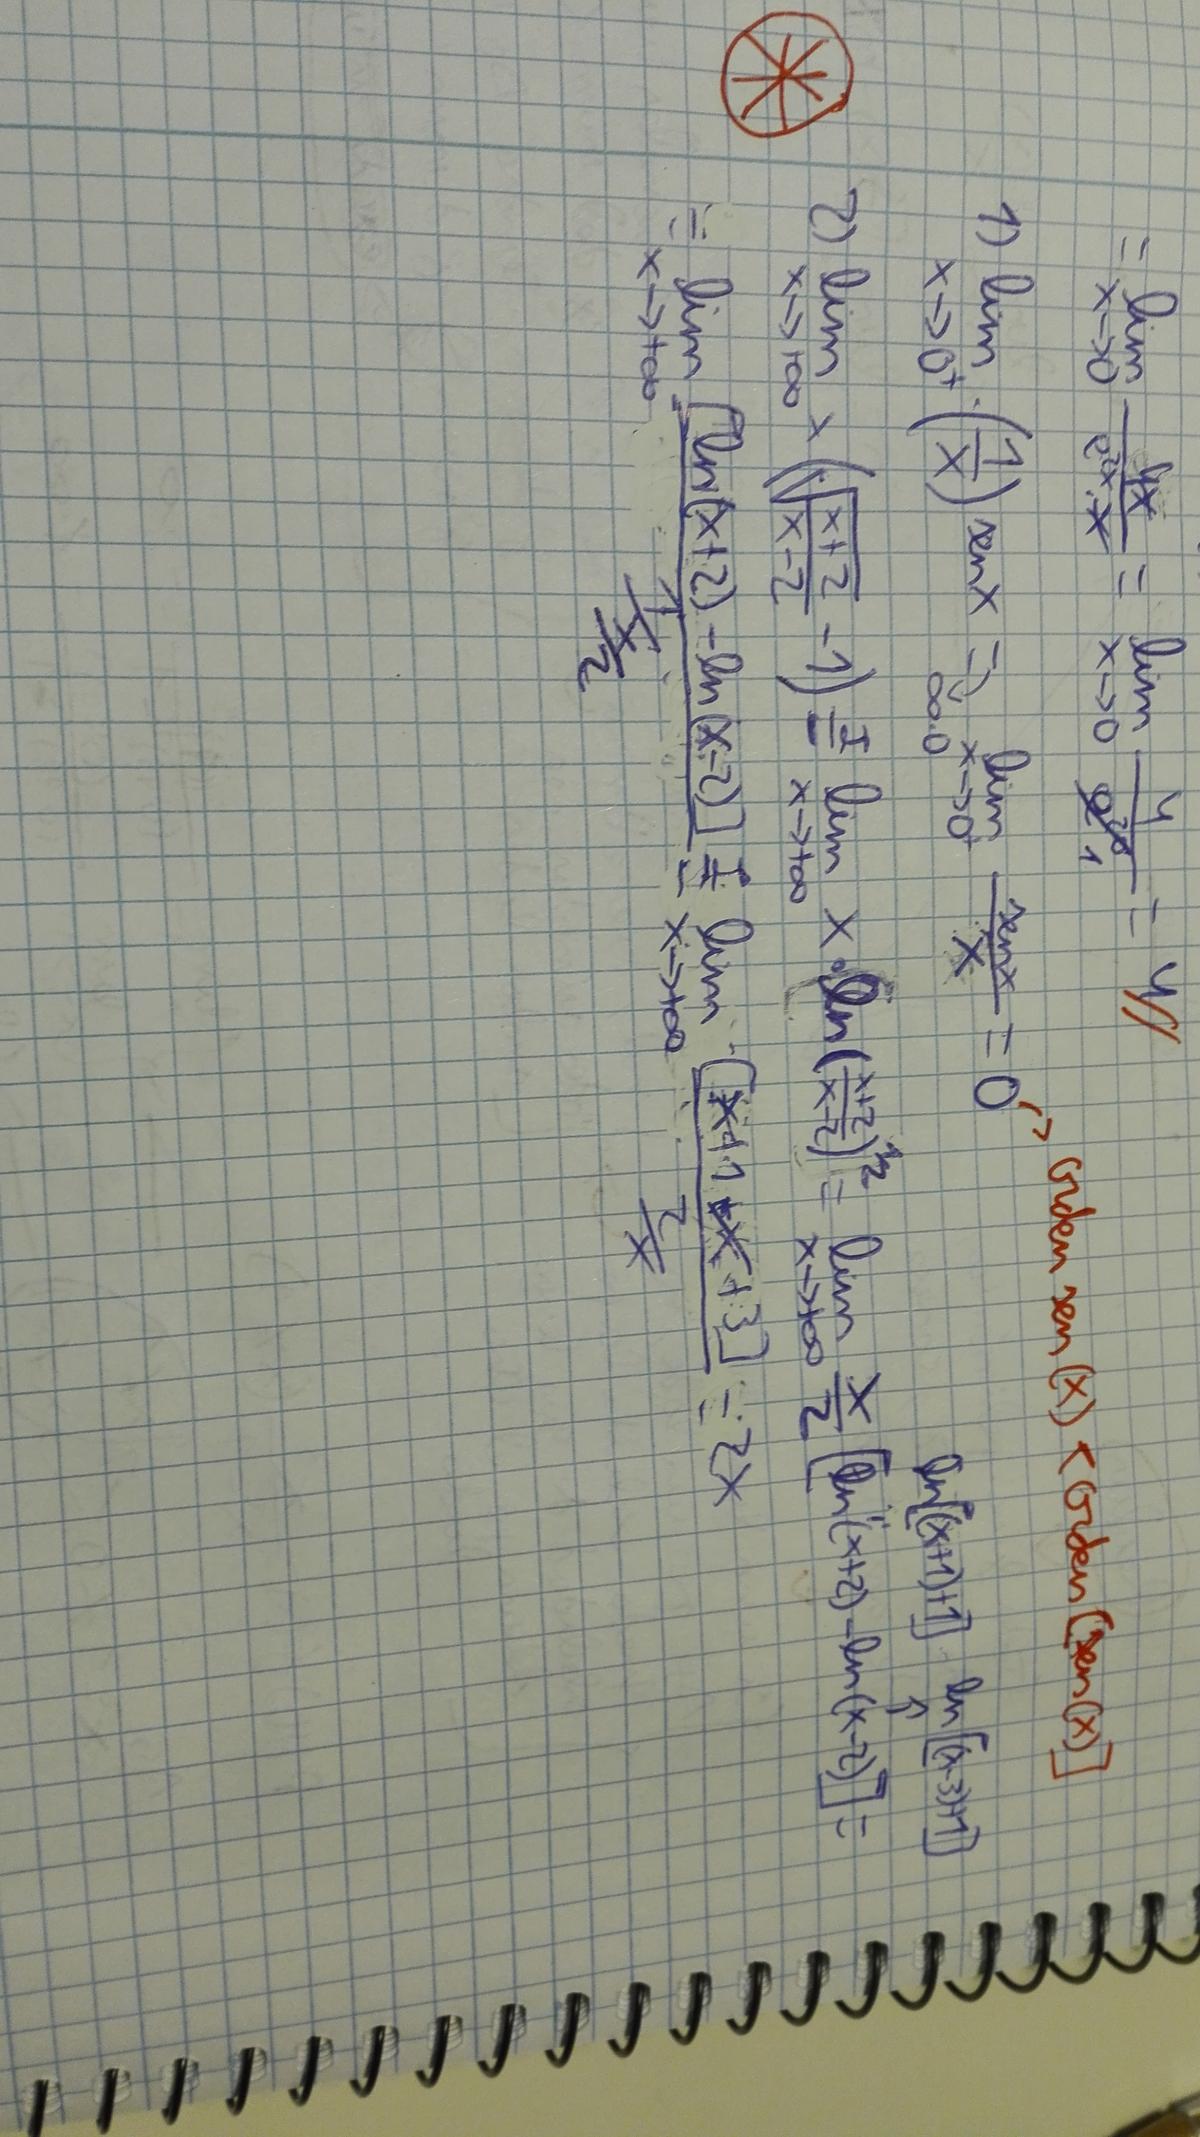 = lim x→0 4x / e^2x · x = lim x→0 4 / e^2x 1 = 4//
1) lim x→0+ (1/x) sen x => ∞·0 lim x→0+ sen x / x = 0 → Orden sen(x) < Orden [sen(x)]
ln[(x+1)+1] ln[(x-3)+1]
2) lim x→+∞ x (√(x+2 / x-2) - 1) = I lim x→+∞ x · ln(x+2 / x-2)^1/2 = lim x→+∞ x/2 [ln(x+2) - ln(x-2)] =
= lim x→+∞ [ln(x+2) - ln(x-2)] / = I lim x→+∞ [x+1 - x+3] / 2/x = 2x